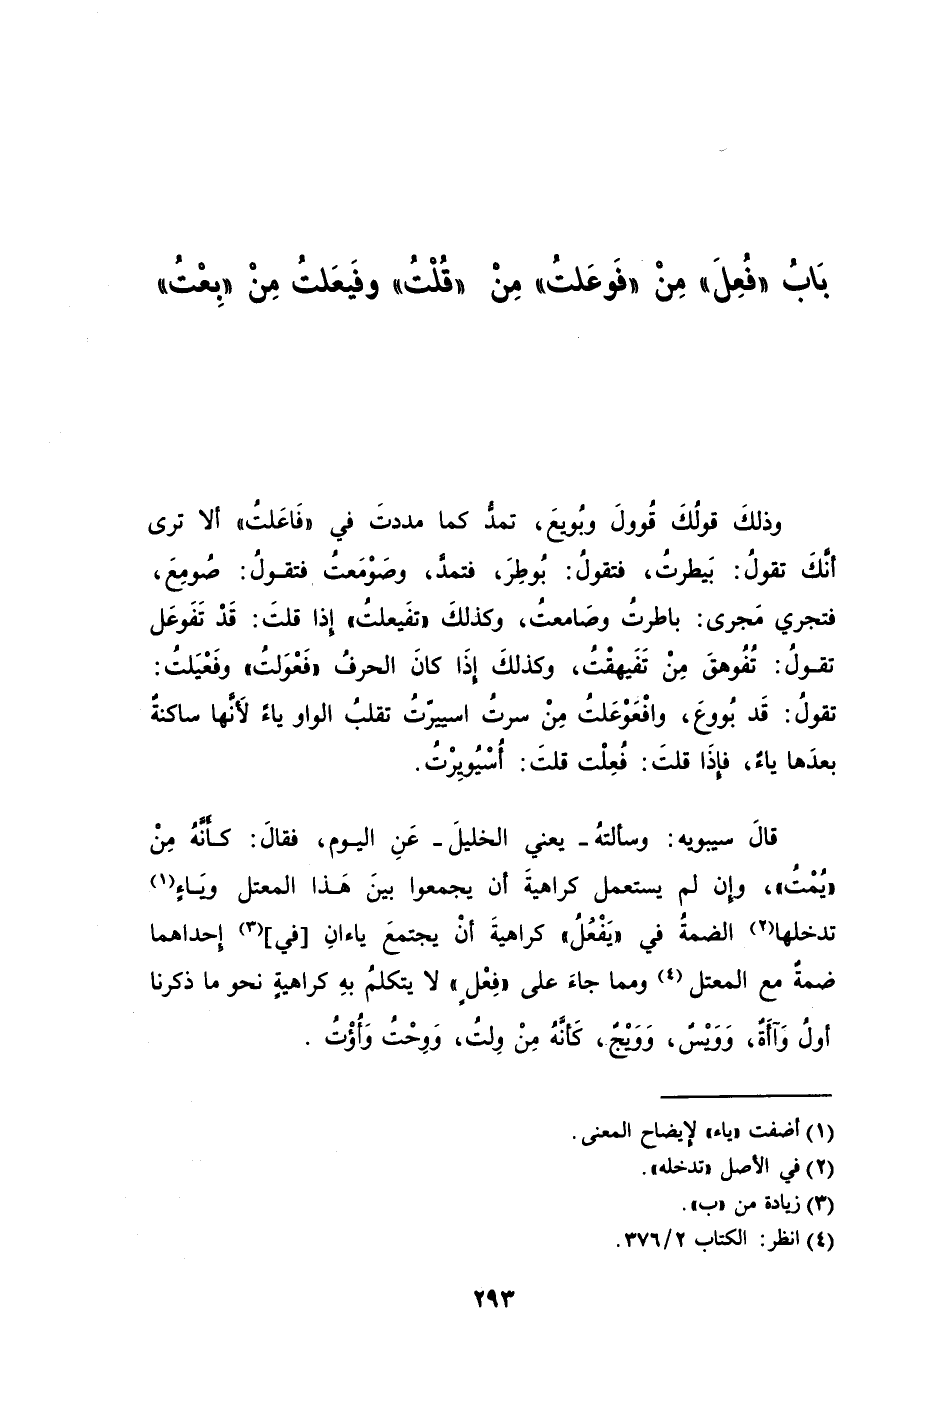 بَابُ «فُعِلَ» مِنْ «فَوعَلتُ» مِنْ «قُلْتُ» وفَيعَلتُ مِنْ «بِعْتُ»
وذلكَ قولُكَ قُوولَ وبُويعَ، تمدُّ كما مددتَ في «فَاعَلتُ» ألا ترى
أنَّكَ تقولُ: بَيطرتُ، فتقولُ: بُوطِرَ، فتمدَّ، وصَوْمَعتُ فتقـولُ: صُومِعَ،
فتجري مَجرى: باطرتُ وصَامعتُ، وكذلكَ «تفَيعلتُ» إذا قلتَ: قَدْ تَفَوعَل
تقـولُ: تُفُوهقَ مِنْ تَفَيهقْتُ، وكذلكَ إذَا كانَ الحرفُ «فَعْوَلتُ» وفَعْيَلتُ:
تقولُ: قَد بُووعَ، وافْعَوْعَلتُ مِنْ سرتُ اسييرّتُ تقلبُ الواو ياءً لَأنَّها ساكنةٌ
بعدَها ياءٌ، فإذَا قلتَ: فُعِلْت قلتَ: أُسْيُويِرْتُ.
قالَ سيبويه: وسألتهُ ـ يعني الخليلَ ـ عَنِ اليـوم، فقالَ: كـأنَّهُ مِنْ
«يُمْتُ»، وإن لم يستعمل كراهيةَ أن يجمعوا بينَ هَـذا المعتل ويَـاءٍ(١)
تدخلها(٢) الضمةُ في «يَفْعُلُ» كراهيةَ أنْ يجتمعَ ياءانِ [في](٣) إحداهما
ضمةٌ مع المعتل (٤) ومما جاءَ على «فِعْلٍ» لا يتكلمُ بهِ كراهيةٍ نحو ما ذكرنا
أولُ وَآأَةٌ، وَوَيْسٌ، وَوَيْحٌ، كَأنَّهُ مِنْ وِلتُ، وَوِحْتُ وَأُوْتُ .
(١) أضفت «ياء» لإيضاح المعنى.
(٢) في الأصل «تدخله».
(٣) زيادة من «ب».
(٤) انظر: الكتاب ٢/٣٧٦.
٢٩٣